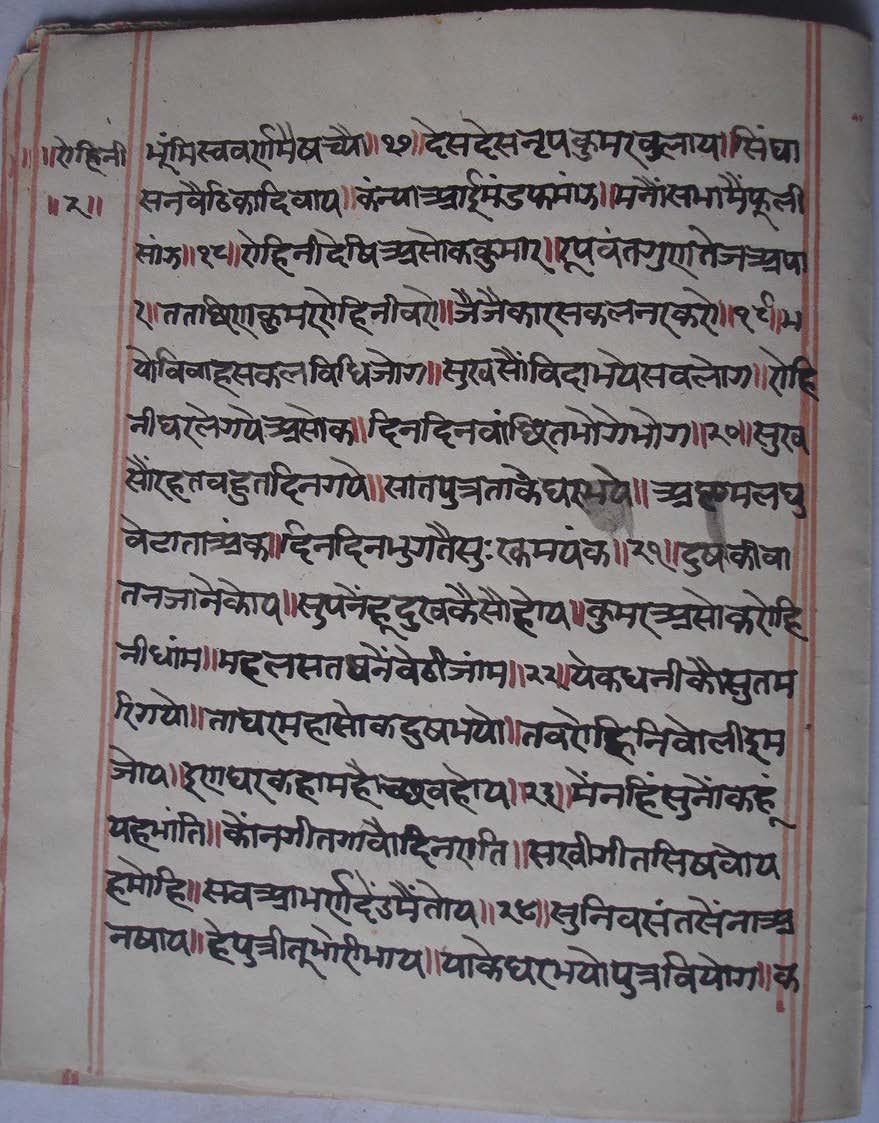 ॥रोहिनी भूंमिस्ववर्णमैषच्यौ॥१७॥देसदेसनृपकुमरवुलाय॥सिंघा
॥२॥ सनवैठिकादिवाय॥कंन्याआईमंडफमांझ॥मनौंसभामैंफूली
सांझ॥१८॥रोहिनीदेषिअसोककुमार॥रूपवंतगुणतेजअपा
र॥तताछिणकुमररोहिनीवरो॥जैजैकारसकलनरकरो॥१९॥भ
योविवाहसकलविधिजोग॥सुखसौंविदाभयेसवलोग॥रोहि
नीघरलेगयेअसोक॥दिनदिनवांछितभोगेभोग॥२०॥सुख
सौंरहतवहुतदिनगये॥सातपुत्रताकैघरभये॥अष्टमलघु
वेटाताअंक॥दिनदिनभुगतैसुःखमयंक॥२१॥दुषकीवा
तनजानेकोय॥सुपनैंहूदुखकैसौहोय॥कुमरअसोकरोहि
नीधांम॥महलसतषनेंवेठीजांम॥२२॥येकधनीकौसुतम
रिगयो॥ताघरमहासोकदुषभयो॥तवरोहिनिवोलीइम
जोय॥इणघरकहामहौच्छवहोय॥२३॥मेंनहिंसुनोंकहूं
यहभांति॥कोंनगीतगावैदिनराति॥सखीगीतसिषवोय
हमोहि॥सवआभर्णदेंउमैंतोय॥२४॥सुनिवसंतसेंनाअ
नषाय॥हेपुत्रीतूभोरीभाय॥याकेघरभयोपुत्रवियोग॥क